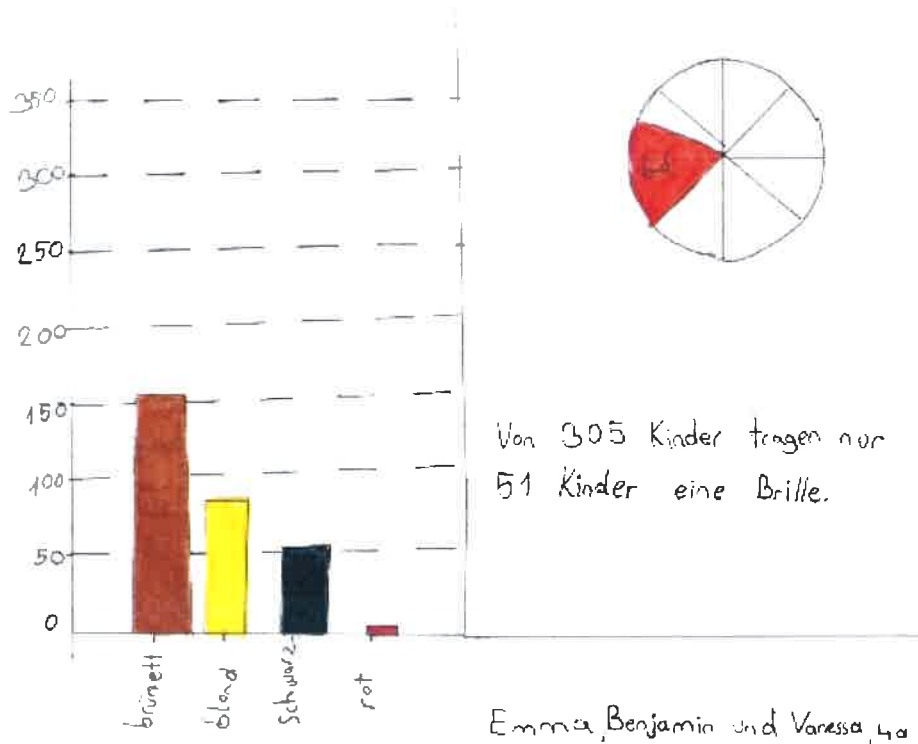 350
300
250
200
150
100
50
0
brünett
blond
schwarz
rot
Von 305 Kinder tragen nur
51 Kinder eine Brille.
Emma, Benjamin und Vanessa, 4a